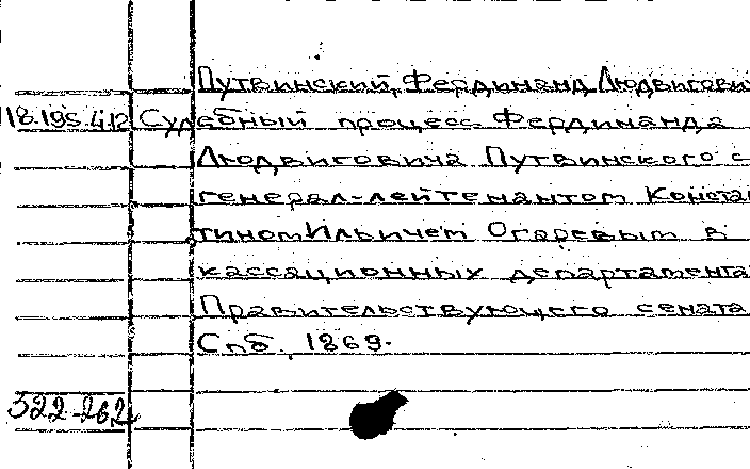 Путвинский, Фердинанд Людвигови
18.195.412 Судебный процесс Фердинанда
Людвиговича Путвинского с
генерал-лейтенантом Конста
тином Ильичем Огаревым в
кассационных департамента
Правительствующего сената
Спб., 1869.
322-262